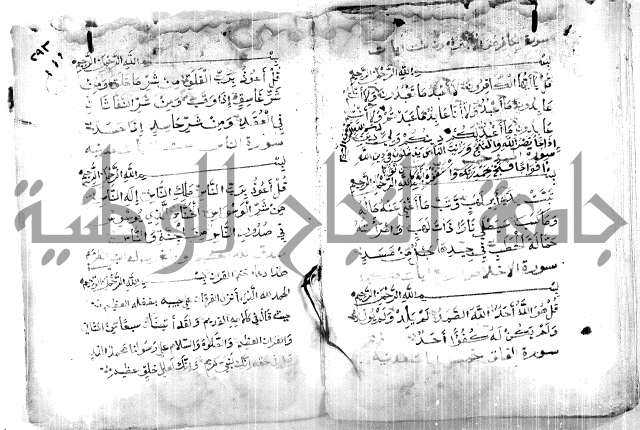 بسم الله الرحمن الرحيم
قل يا أيها الكافرون لا أعبد ما تعبدون ولا أنتم
عابدون ما أعبد ولا أنا عابد ما عبدتم ولا أنتم
عابدون ما أعبد لكم دينكم ولي دين
إذا جاء نصر الله والفتح ورأيت الناس يدخلون في دين الله
أفواجا فسبح بحمد ربك واستغفره
بسم الله الرحمن الرحيم
تبت يدا أبي لهب وتب ما أغنى عنه ماله
وما كسب سيصلى نارا ذات لهب وامرأته
حمالة الحطب في جيدها حبل من مسد
سورة الاخلاص
بسم الله الرحمن الرحيم
قل هو الله أحد الله الصمد لم يلد ولم يولد
ولم يكن له كفوا أحد
سورة الفلق خمس
٢٩٣
بسم الله الرحمن الرحيم
قل أعوذ برب الفلق من شر ما خلق ومن
شر غاسق إذا وقب ومن شر النفاثات
في العقد ومن شر حاسد إذا حسد
سورة الناس ست
بسم الله الرحمن الرحيم
قل أعوذ برب الناس ملك الناس إله الناس
من شر الوسواس الخناس الذي يوسوس
في صدور الناس من الجنة والناس
هذا دعاء ختم القران بسم الله الرحمن الرحيم
الحمد لله الذي أنزل القرآن على حبيبه بفضله العظيم
حيث قال في كلامه القديم ولقد آتيناك سبعا من المثاني
والقرآن العظيم والصلوة والسلام على رسولنا محمد الذي
إنك لعلى خلق عظيم
جامعة النجاح الوطنية